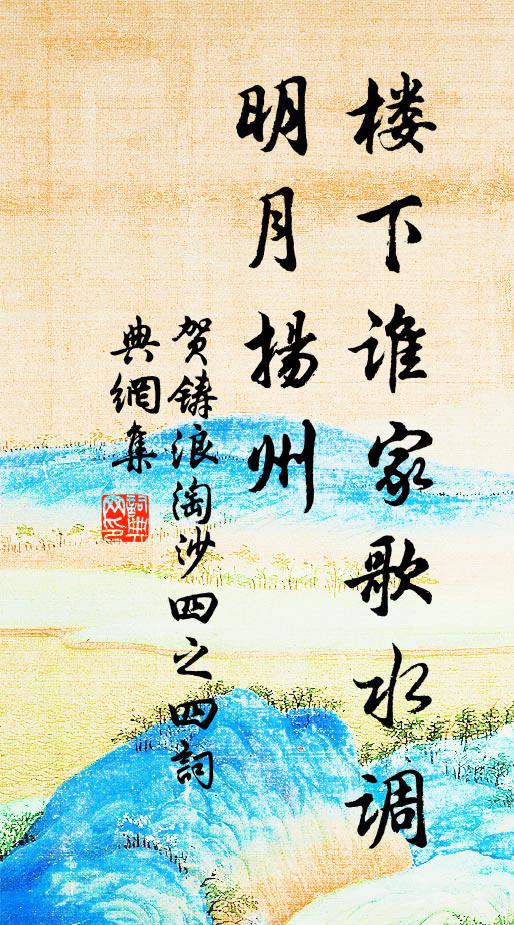 楼下谁家歌水调
明月扬州
贺铸浪淘沙四之四詞
典網集
詞典